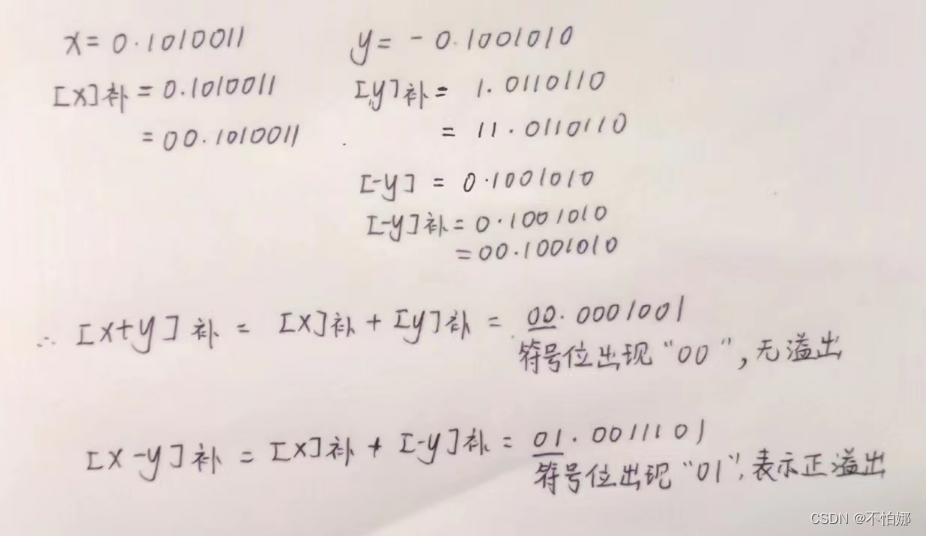 x = 0.1010011
y = - 0.1001010
[x]补 = 0.1010011
[y]补 = 1.0110110
= 00.1010011
= 11.0110110
[-y] = 0.1001010
[-y]补 = 0.1001010
= 00.1001010
∴ [x+y]补 = [x]补 + [y]补 = 00.0001001
符号位出现“00”,无溢出
[x-y]补 = [x]补 + [-y]补 = 01.0011101
符号位出现“01”,表示正溢出
CSDN @不怕娜